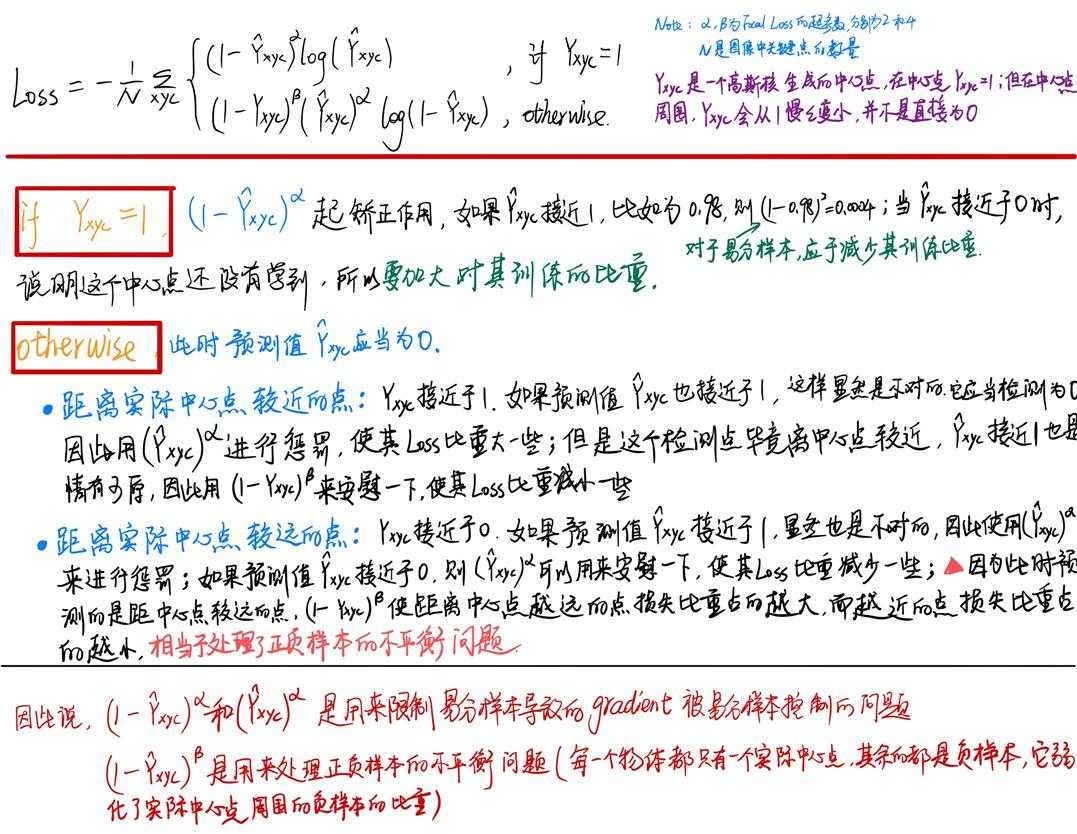 Note: α,β为Focal Loss的超参数,分别为2和4
N是图像中关键点的数量
Loss = -1/N Σxyc { (1-Ŷxyc)^α log(Ŷxyc) , if Yxyc=1
(1-Yxyc)^β (Ŷxyc)^α log(1-Ŷxyc) , otherwise.
Yxyc是一个高斯核生成的中心点,在中心点Yxyc=1;但在中心点
周围,Yxyc会从1慢慢变小,并不是直接为0
if Yxyc=1, (1-Ŷxyc)^α 起矫正作用,如果Ŷxyc接近1,比如为0.98,则(1-0.98)²=0.0004;当Ŷxyc接近于0时,
对于易分样本,应于减少其训练比重.
说明这个中心点还没有学到,所以要加大对其训练的比重.
otherwise, 此时预测值Ŷxyc应当为0.
• 距离实际中心点较近的点: Yxyc接近于1.如果预测值Ŷxyc也接近于1,这样显然是不对的.它应当检测为0
因此用(Ŷxyc)^α进行惩罚,使其Loss比重大一些;但是这个检测点毕竟离中心点较近,Ŷxyc接近1也是
情有可原,因此用(1-Yxyc)^β来安慰一下,使其Loss比重减小一些
• 距离实际中心点较远的点: Yxyc接近于0.如果预测值Ŷxyc接近于1,显然也是不对的,因此使用(Ŷxyc)^α
来进行惩罚;如果预测值Ŷxyc接近于0,则(Ŷxyc)^α可以用来安慰一下,使其Loss比重减少一些;▲因为此时预
测的是距中心点较远的点,(1-Yxyc)^β使距离中心点越远的点损失比重占的越大,而越近的点损失比重占
的越小,相当于处理了正负样本的不平衡问题.
因此说,(1-Ŷxyc)^α和(Ŷxyc)^α是用来限制易分样本导致的gradient被易分样本控制的问题
(1-Ŷxyc)^β是用来处理正负样本的不平衡问题(每一个物体都只有一个实际中心点,其余的都是负样本,它弱
化了实际中心点周围的负样本的比重)